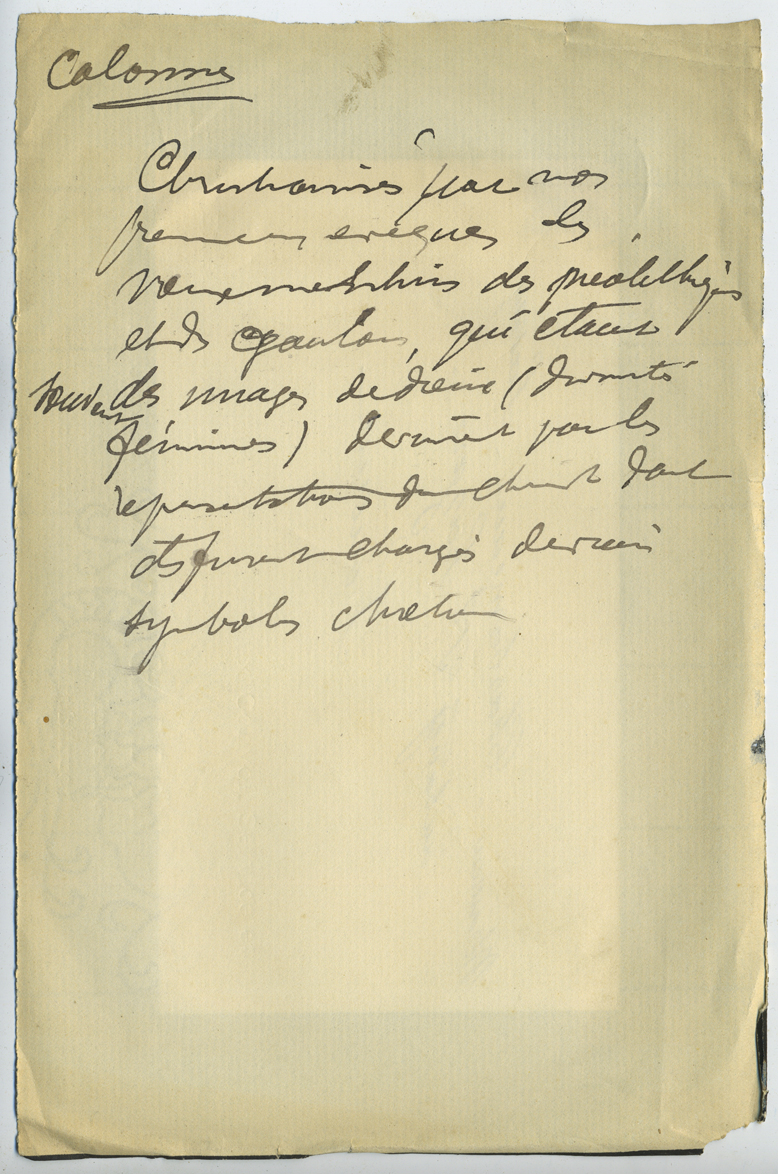 Colonne
Christianisés par nos
premiers evêques les
vieux menhirs des préceltiques
et des gaulois, qui étaient
souvent des images de déesse (divinités
féminines) devinrent par les
representations du Christ dont
ils furent chargés de vrais
symboles chrétiens